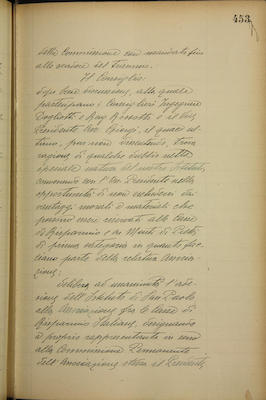 453
della Commissione con mandato fino
alla scadenza del Triennio.
Il Consiglio:
dopo breve discussione, alla quale
partecipano i Consiglieri Ingegnere
Rag. Rossotto e il Vice
Presidente Avv. Giorgi, il quale ul-
timo, pur non dissentendo, trova
ragione di qualche dubbio nella
speciale natura del nostro Istituto,
convenendo con l'On. Presidente nella
opportunità di non escludere dei
vantaggi morali e materiali che
possono essere riservati alle Casse
di Risparmio e ai Monti di Pietà
di prima categoria in quanto fac-
ciano parte della relativa Associa-
zione;
Delibera ad unanimità l'ade-
sione dell'Istituto di San Paolo
alla Associazione fra le Casse di
Risparmio Italiane, designando
a proprio rappresentante in seno
alla Commissione Permanente
dell'Associazione stessa il Presidente